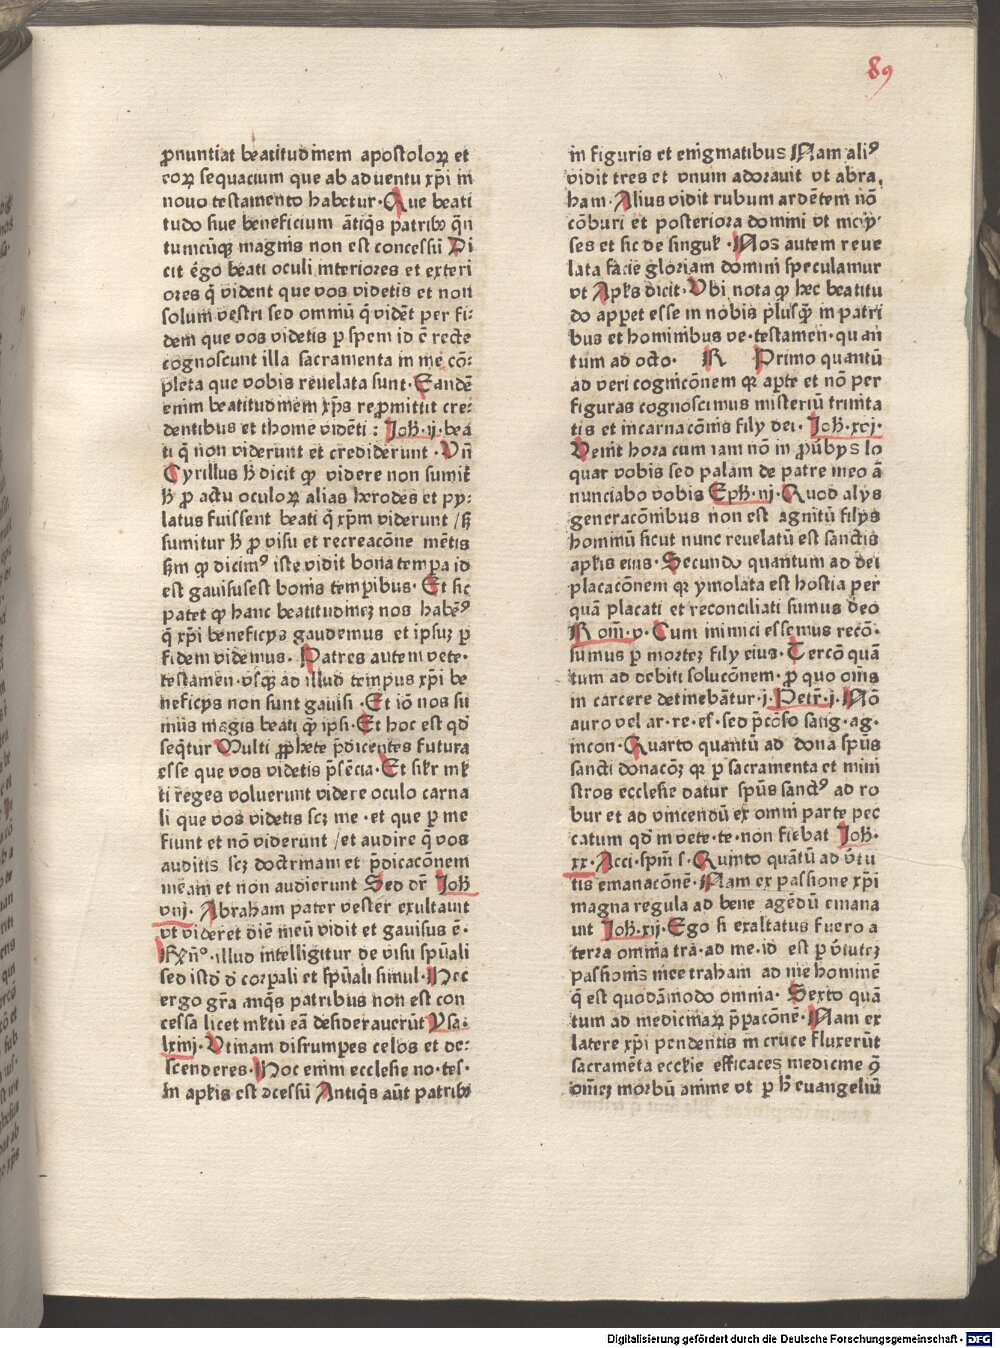 89
ꝓnuntiat beatitudinem apostoloꝝ et
eoꝝ sequacium que ab aduentu xp̄i in
nouo testamento habetur. Que beati
tudo siue beneficium ātiq̄s patribꝰ q̄n
tumcūqꝫ magnis non est concessū Di
cit ergo beati oculi interiores et exteri
ores q̄ vident que vos videtis et non
solum vestri sed omniū q̄ vidēt per fi:
dem que vos videtis p spem id ē recte
cognoscunt illa sacramenta in me cō:
pleta que vobis reuelata sunt. Eandē
enim beatitudinem xp̄s repromittit cre:
dentibus et thome vidēti : Joh̄. ij. bea
ti q̄ non viderunt et crediderunt. Vn̄
Cyrillus h̄ dicit ꝙ videre non sumit̄
h̄ ꝓ actu oculoꝝ alias herodes et py:
latus fuissent beati q̄ xp̄m viderunt / sꝫ
sumitur h̄ ꝓ visu et recreacōne mētis
sm̄ ꝙ dicimꝰ iste vidit bona tempa id
est gauisusest bonis tempibus. Et sic
patet ꝙ hanc beatitudineꝫ nos habēꝰ
q̄ xp̄i beneficys gaudemus et ipsuꝫ p
fidem videmus. Patres autem vete.
testamen. vsqꝫ ad illud tempus xp̄i be
neficys non sunt gauisi. Et iō nos su
mus magis beati q̄ ipsi. Et hoc est qd̄
seq̄tur Multi ꝓphete p̄dicentes futura
esse que vos videtis p̄sēcia. Et silr ml̄
ti reges voluerunt videre oculo carna
li que vos videtis scꝫ me. et que p me
fiunt et nō viderunt / et audire q̄ vos
auditis scꝫ doctrinam et p̄dicacōnem
meam et non audierunt Sed dr̄ Joh̄
viij. Abraham pater vester exultauit
vt videret diē meū vidit et gauisus ē.
Rn̄ꝰ. illud intelligitur de visu spūali
sed istd̄ d̄ corpali et spūali simul. Hec
ergo gr̄a anq̄s patribus non est con
cessa licet ml̄tū eā desiderauerūt Ysa.
lxiiij. Vtinam disrumpes celos et de:
scenderes. Hoc enim ecclesie no. tes.
in apl̄is est ↄcessū Antiq̄s aūt patribꝰ
in figuris et enigmatibus Nam aliꝰ
vidit tres et vnum adorauit vt abra,
ham. Alius vidit rubum ardētem nō
cōburi et posteriora domini vt moy:
ses et sic de singul̄. Nos autem reue
lata facie gloriam domini speculamur
vt Apl̄s dicit. Vbi nota ꝙ hec beatitu
do appet esse in nobis plusq̄ in patri
bus et hominibus ve. testamen. quan
tum ad octo. R̄ Primo quantū
ad veri cognicōnem qꝛ apte et nō per
figuras cognoscimus misteriū trinita
tis et incarnacōnis fily dei. Joh̄. xvj.
Venit hora cum iam nō in ꝓūbys lo
quar vobis sed palam de patre meo ā
nunciabo vobis Eph̄. iij. Quod alys
generacōnibus non est agnitū filys
hominū sicut nunc reuelatū est sanctis
apl̄is eius. Secundo quantum ad dei
placacōnem qꝛ ymolata est hostia per
quā placati et reconciliati sumus deo
Rom̄. v. Cum inimici essemus recō.
sumus p morteꝫ fily eius. Tercō quā
tum ad debiti solucōnem. ꝓ quo om̄s
in carcere detinebātur. j. Petr̄. j. Nō
auro vel ar. re. es. sed p̄cōso sang. ag.
incon. Quarto quantū ad dona spūs
sancti donacōꝫ qꝛ p sacramenta et mini
stros ecclesie datur spūs sanctꝰ ad ro
bur et ad vincendū ex omni parte pec
catum qd̄ in vete. te. non fiebat Joh̄.
xx. Acci. spm̄ s. Quinto quātū ad v̄tu
tis emanacōnē. Nam ex passione xp̄i
magna regula ad bene agēdū emana
uit Joh̄. xij. Ego si exaltatus fuero a
terra omnia trā. ad me. id est p v̄tuteꝫ
passionis mee traham ad me hominē
q̄ est quodāmodo omnia. Sexto quā
tum ad medicinaꝝ p̄pacōnē. Nam ex
latere xp̄i pendentis in cruce fluxerūt
sacramēta eccl̄ie efficaces medicine ꝯ̄
om̄eꝫ morbū anime vt p h̄ euangeliū
Digitalisierung gefördert durch die Deutsche Forschungsgemeinschaft - DFG